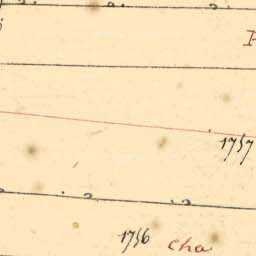 1757
1756 cha